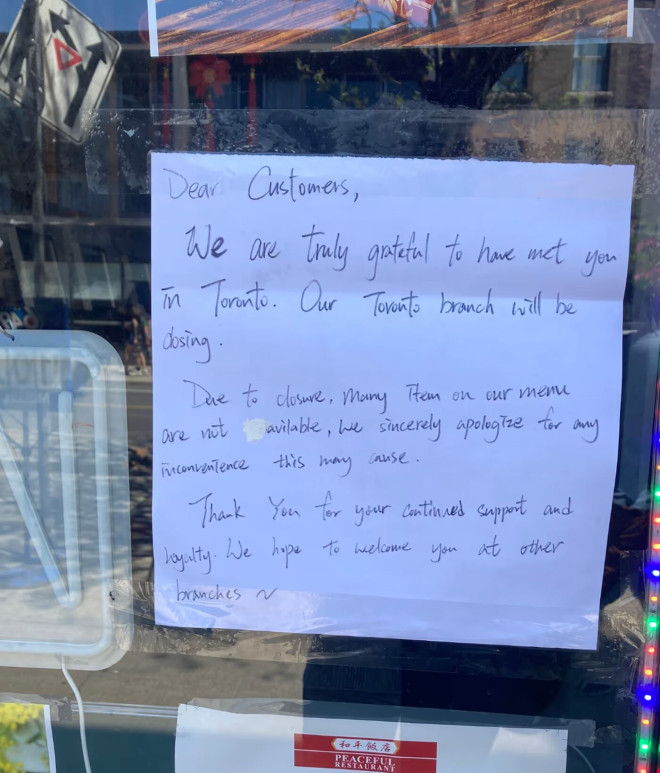 Dear Customers,
We are truly grateful to have met you
in Toronto. Our Toronto branch will be
closing.
Due to closure, many item on our menu
are not avilable, we sincerely apologize for any
inconvenience this may cause.
Thank You for your continued support and
loyalty. We hope to welcome you at other
branches ~
和平飯店
PEACEFUL
RESTAURANT